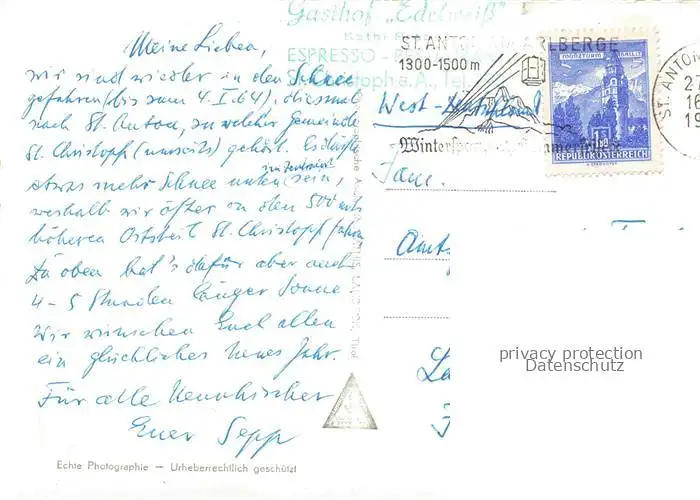 Gasthof „Edelweiß"
Kathi
ESPRESSO -
St. Christoph a. A., Tel.
ST. ANTON AM ARLBERG
1300-1500 m
Wintersport
MÜNZTURM HALL I.T.
S 1.50
REPUBLIK ÖSTERREICH
ST. ANTON
27
16
19
Meine Lieben,
wir sind wieder in den Schnee
gefahren (bis zum 4. I. 64), diesmal
nach St. Anton, zu welcher Gemeinde
St. Christoph gehört. Es dürfte
etwas mehr Schnee unten sein,
weshalb wir öfter in den 500 mtr
höheren Ortsteil St. Christoph fahren.
Da oben hat's dafür aber auch
4-5 Stunden länger Sonne
Wir wünschen Euch allen
ein glückliches neues Jahr.
Für alle
Euer Sepp
West-Deutschland
Fam.
Amts
Echte Photographie — Urheberrechtlich geschützt
privacy protection
Datenschutz